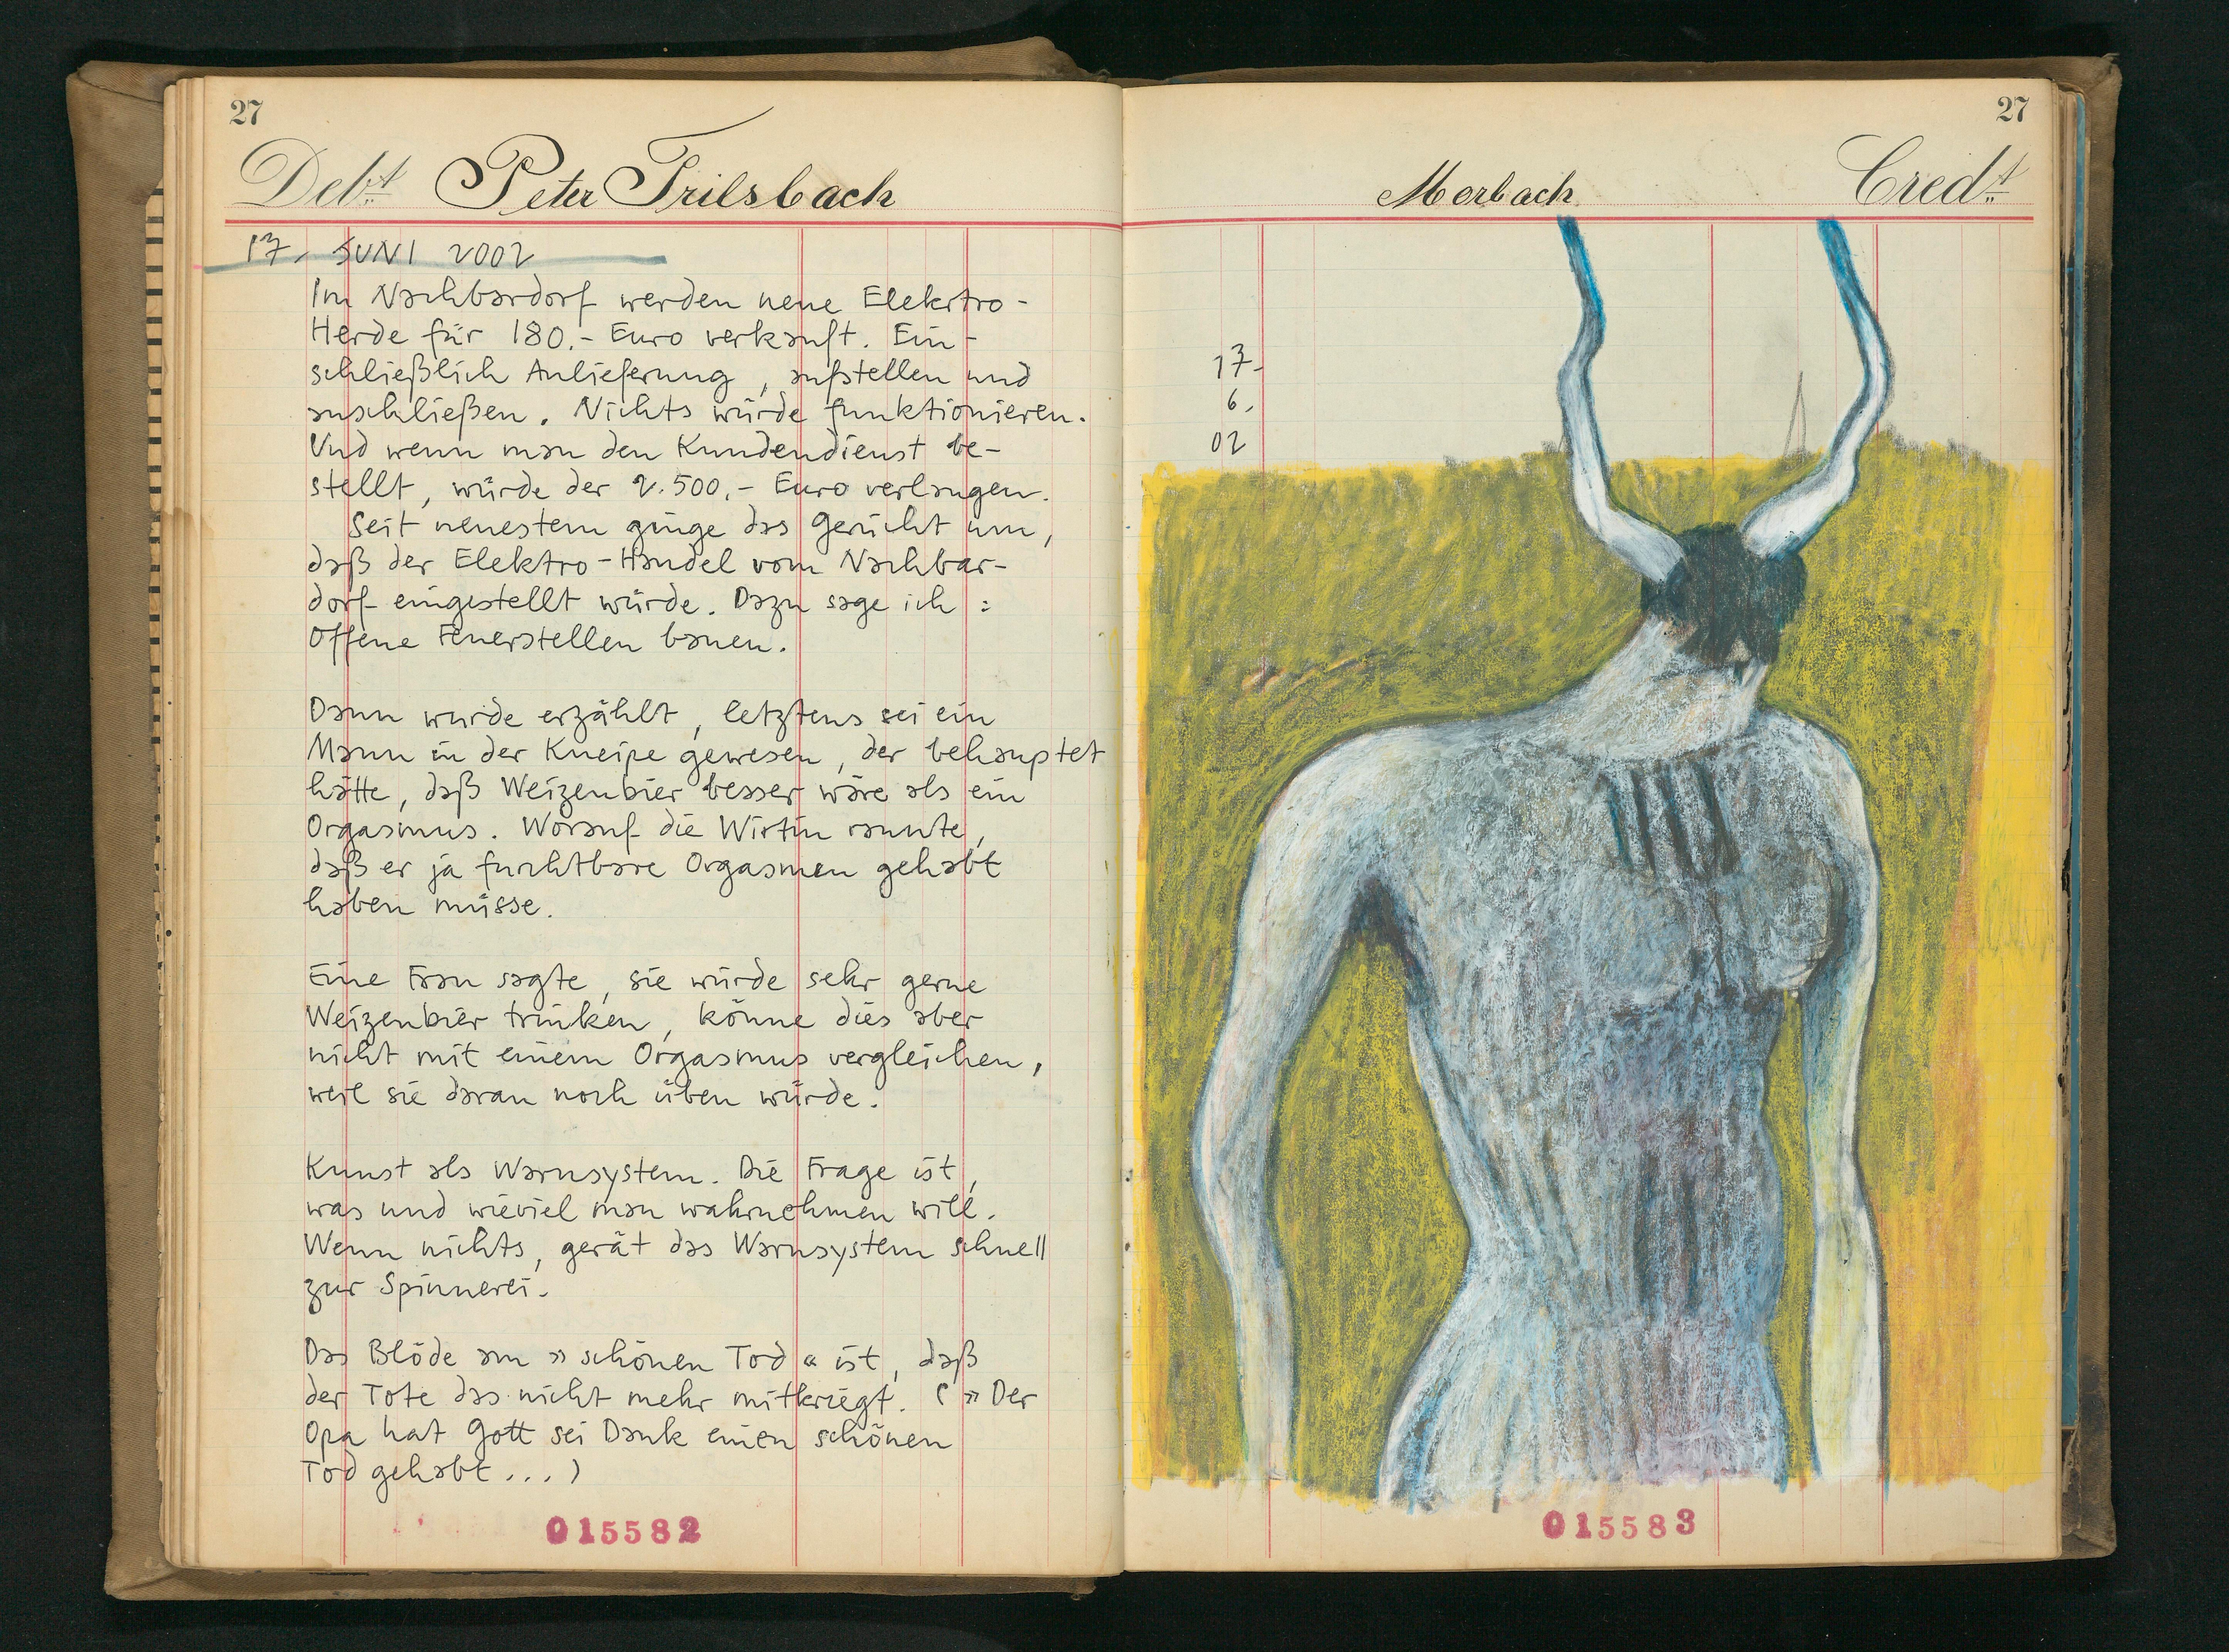 27
Debt Peter Trilsbach
17. JUNI 2002
Im Nachbardorf werden neue Elektro-
Herde für 180.- Euro verkauft. Ein-
schließlich Anlieferung, aufstellen und
anschließen. Nichts würde funktionieren.
Und wenn man den Kundendienst be-
stellt, würde der 2.500,- Euro verlangen.
Seit neuestem ginge das Gerücht um,
daß der Elektro-Handel vom Nachbar-
dorf eingestellt würde. Dazu sage ich:
Offene Feuerstellen bauen.
Dann wurde erzählt, letztens sei ein
Mann in der Kneipe gewesen, der behauptet
hätte, daß Weizenbier besser wäre als ein
Orgasmus. Worauf die Wirtin raunte,
daß er ja furchtbare Orgasmen gehabt
haben müsse.
Eine Frau sagte, sie würde sehr gerne
Weizenbier trinken, könne dies aber
nicht mit einem Orgasmus vergleichen,
weil sie daran noch üben würde.
Kunst als Warnsystem. Die Frage ist,
was und wieviel man wahrnehmen will.
Wenn nichts, gerät das Warnsystem schnell
zur Spinnerei.
Das Blöde am »schönen Tod« ist, daß
der Tote das nicht mehr mitkriegt. (»Der
Opa hat Gott sei Dank einen schönen
Tod gehabt...)
015582
27
Morbach Credt
17.
6.
02
015583